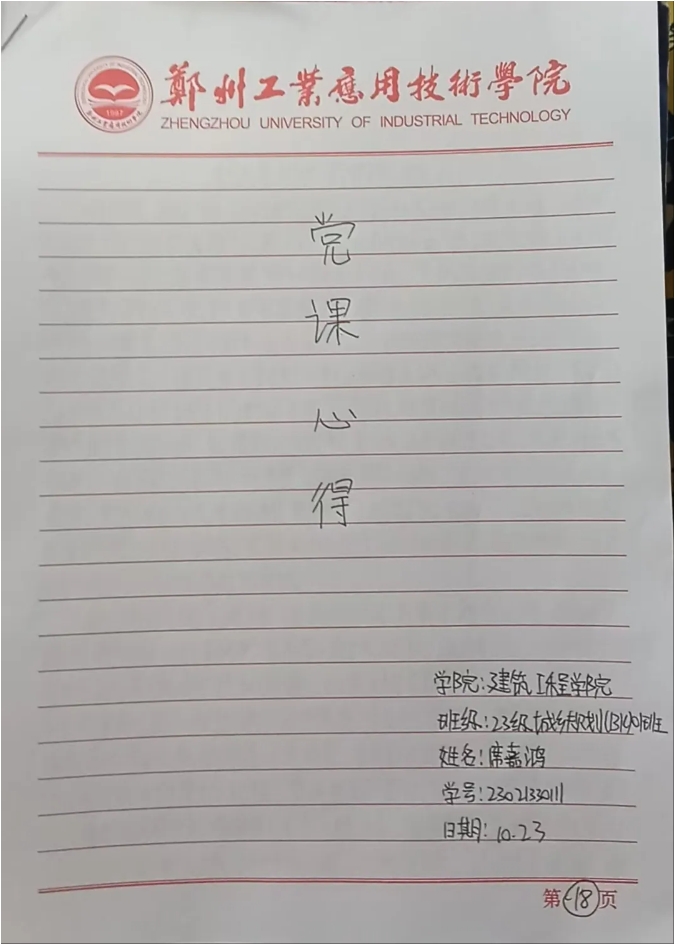 鄭州工業應用技術學院
ZHENGZHOU UNIVERSITY OF INDUSTRIAL TECHNOLOGY
1987
党
课
心
得
学院:建筑工程学院
班级:23级城乡规划(B1401)班
姓名:席嘉鸿
学号:23021330111
日期:10.23
第-18页